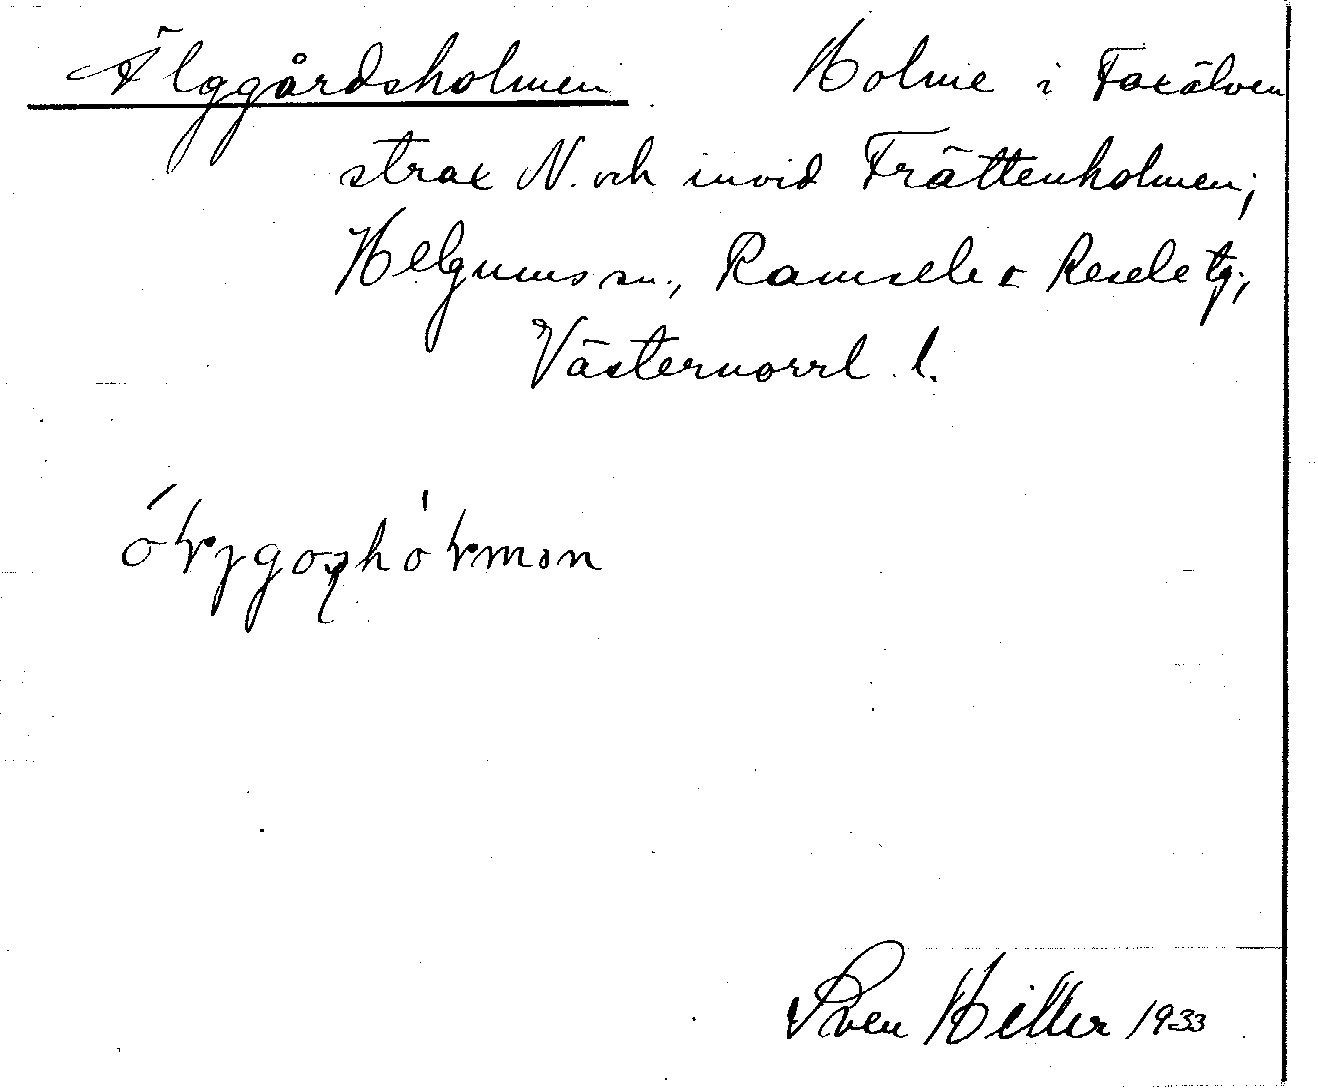 Älggårdsholmen Holme i Faxälven
strax N. och invid Frättenholmen;
Helgums sn., Ramsele o Resele tg.,
Västernorrl. l.
Sven Hiller 1933